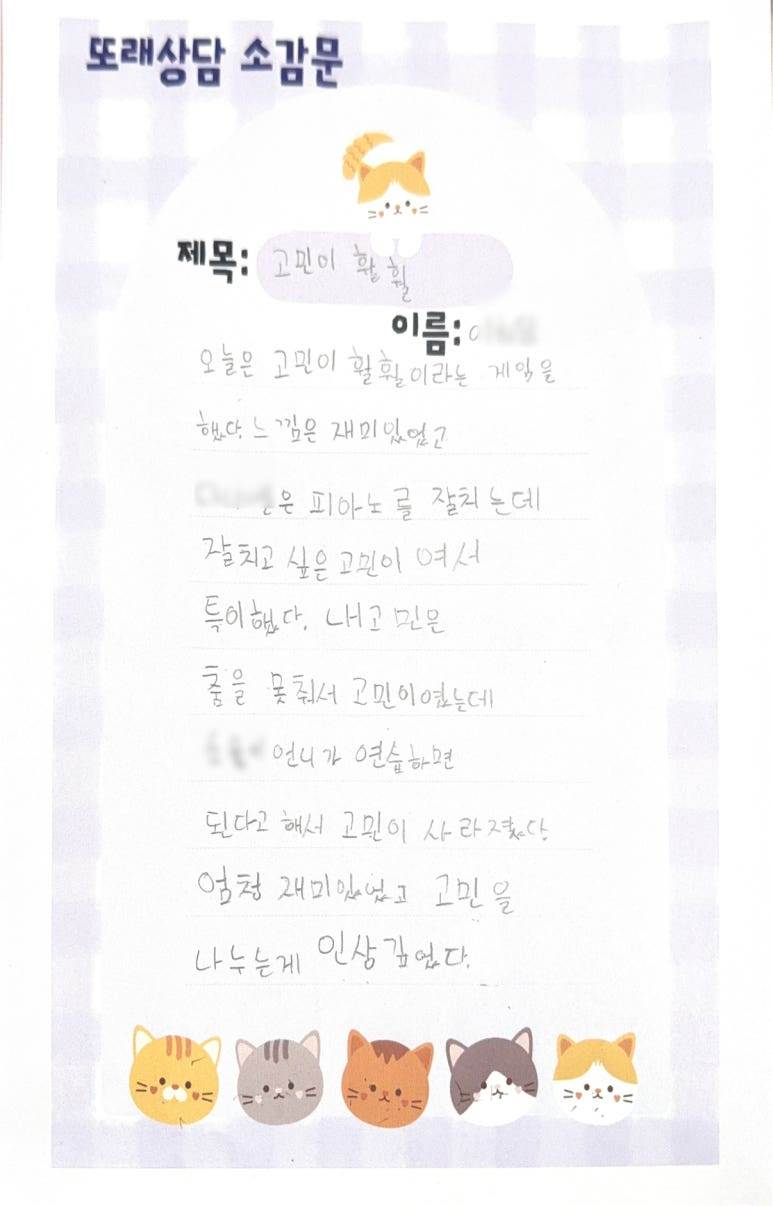 또래상담 소감문
제목: 고민이 훨훨
이름:
오늘은 고민이 훨훨이라는 게임을
했다. 느낌은 재미있었고
은 피아노를 잘치는데
잘치고 싶은 고민이 여서
특이했다. 내고민은
춤을 못춰서 고민이였는데
언니가 연습하면
된다고 해서 고민이 사라졌다
엄청 재미있었고 고민을
나누는게 인상깊었다.